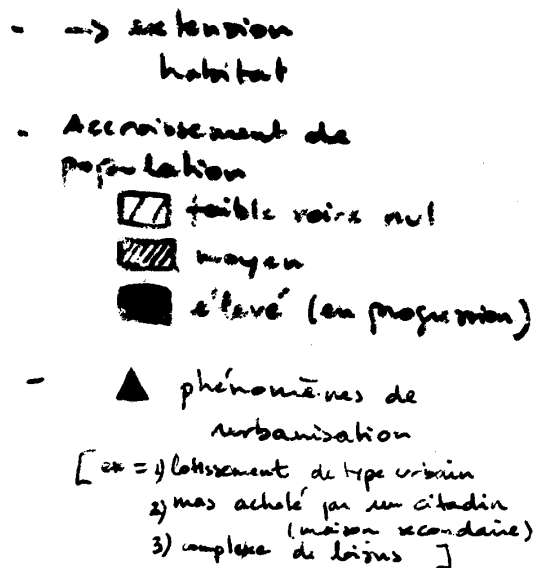 - --> extension
habitat
- Accroissement de
population
faible voire nul
moyen
élevé (en progression)
- ▲ phénomènes de
rurbanisation
[ ex = 1) lotissement de type urbain
2) mas acheté par un citadin
(maison secondaire)
3) complexe de loisirs ]